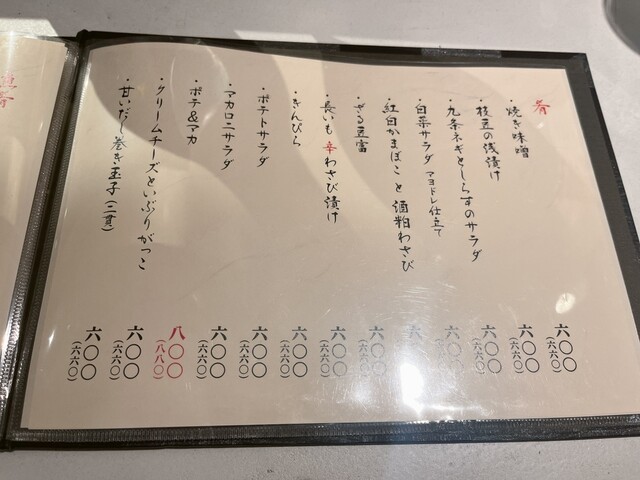 肴
・焼き味噌 六〇〇(六六〇)
・枝豆の浅漬け 六〇〇(六六〇)
・九条ネギとしらすのサラダ 六〇〇(六六〇)
・白菜サラダ マヨドレ仕立て 六〇〇(六六〇)
・紅白かまぼこと酒粕わさび 六
・ざる豆富 六〇〇(六六〇)
・長いも辛わさび漬け 六〇〇(六六〇)
・きんぴら 六〇〇(六六〇)
・ポテトサラダ 六〇〇(六六〇)
・マカロニサラダ 六〇〇(六六〇)
・ポテ&マカ 八〇〇(八八〇)
・クリームチーズといぶりがっこ 六〇〇(六六〇)
・甘いだし巻き玉子(二貫) 六〇〇(六六〇)